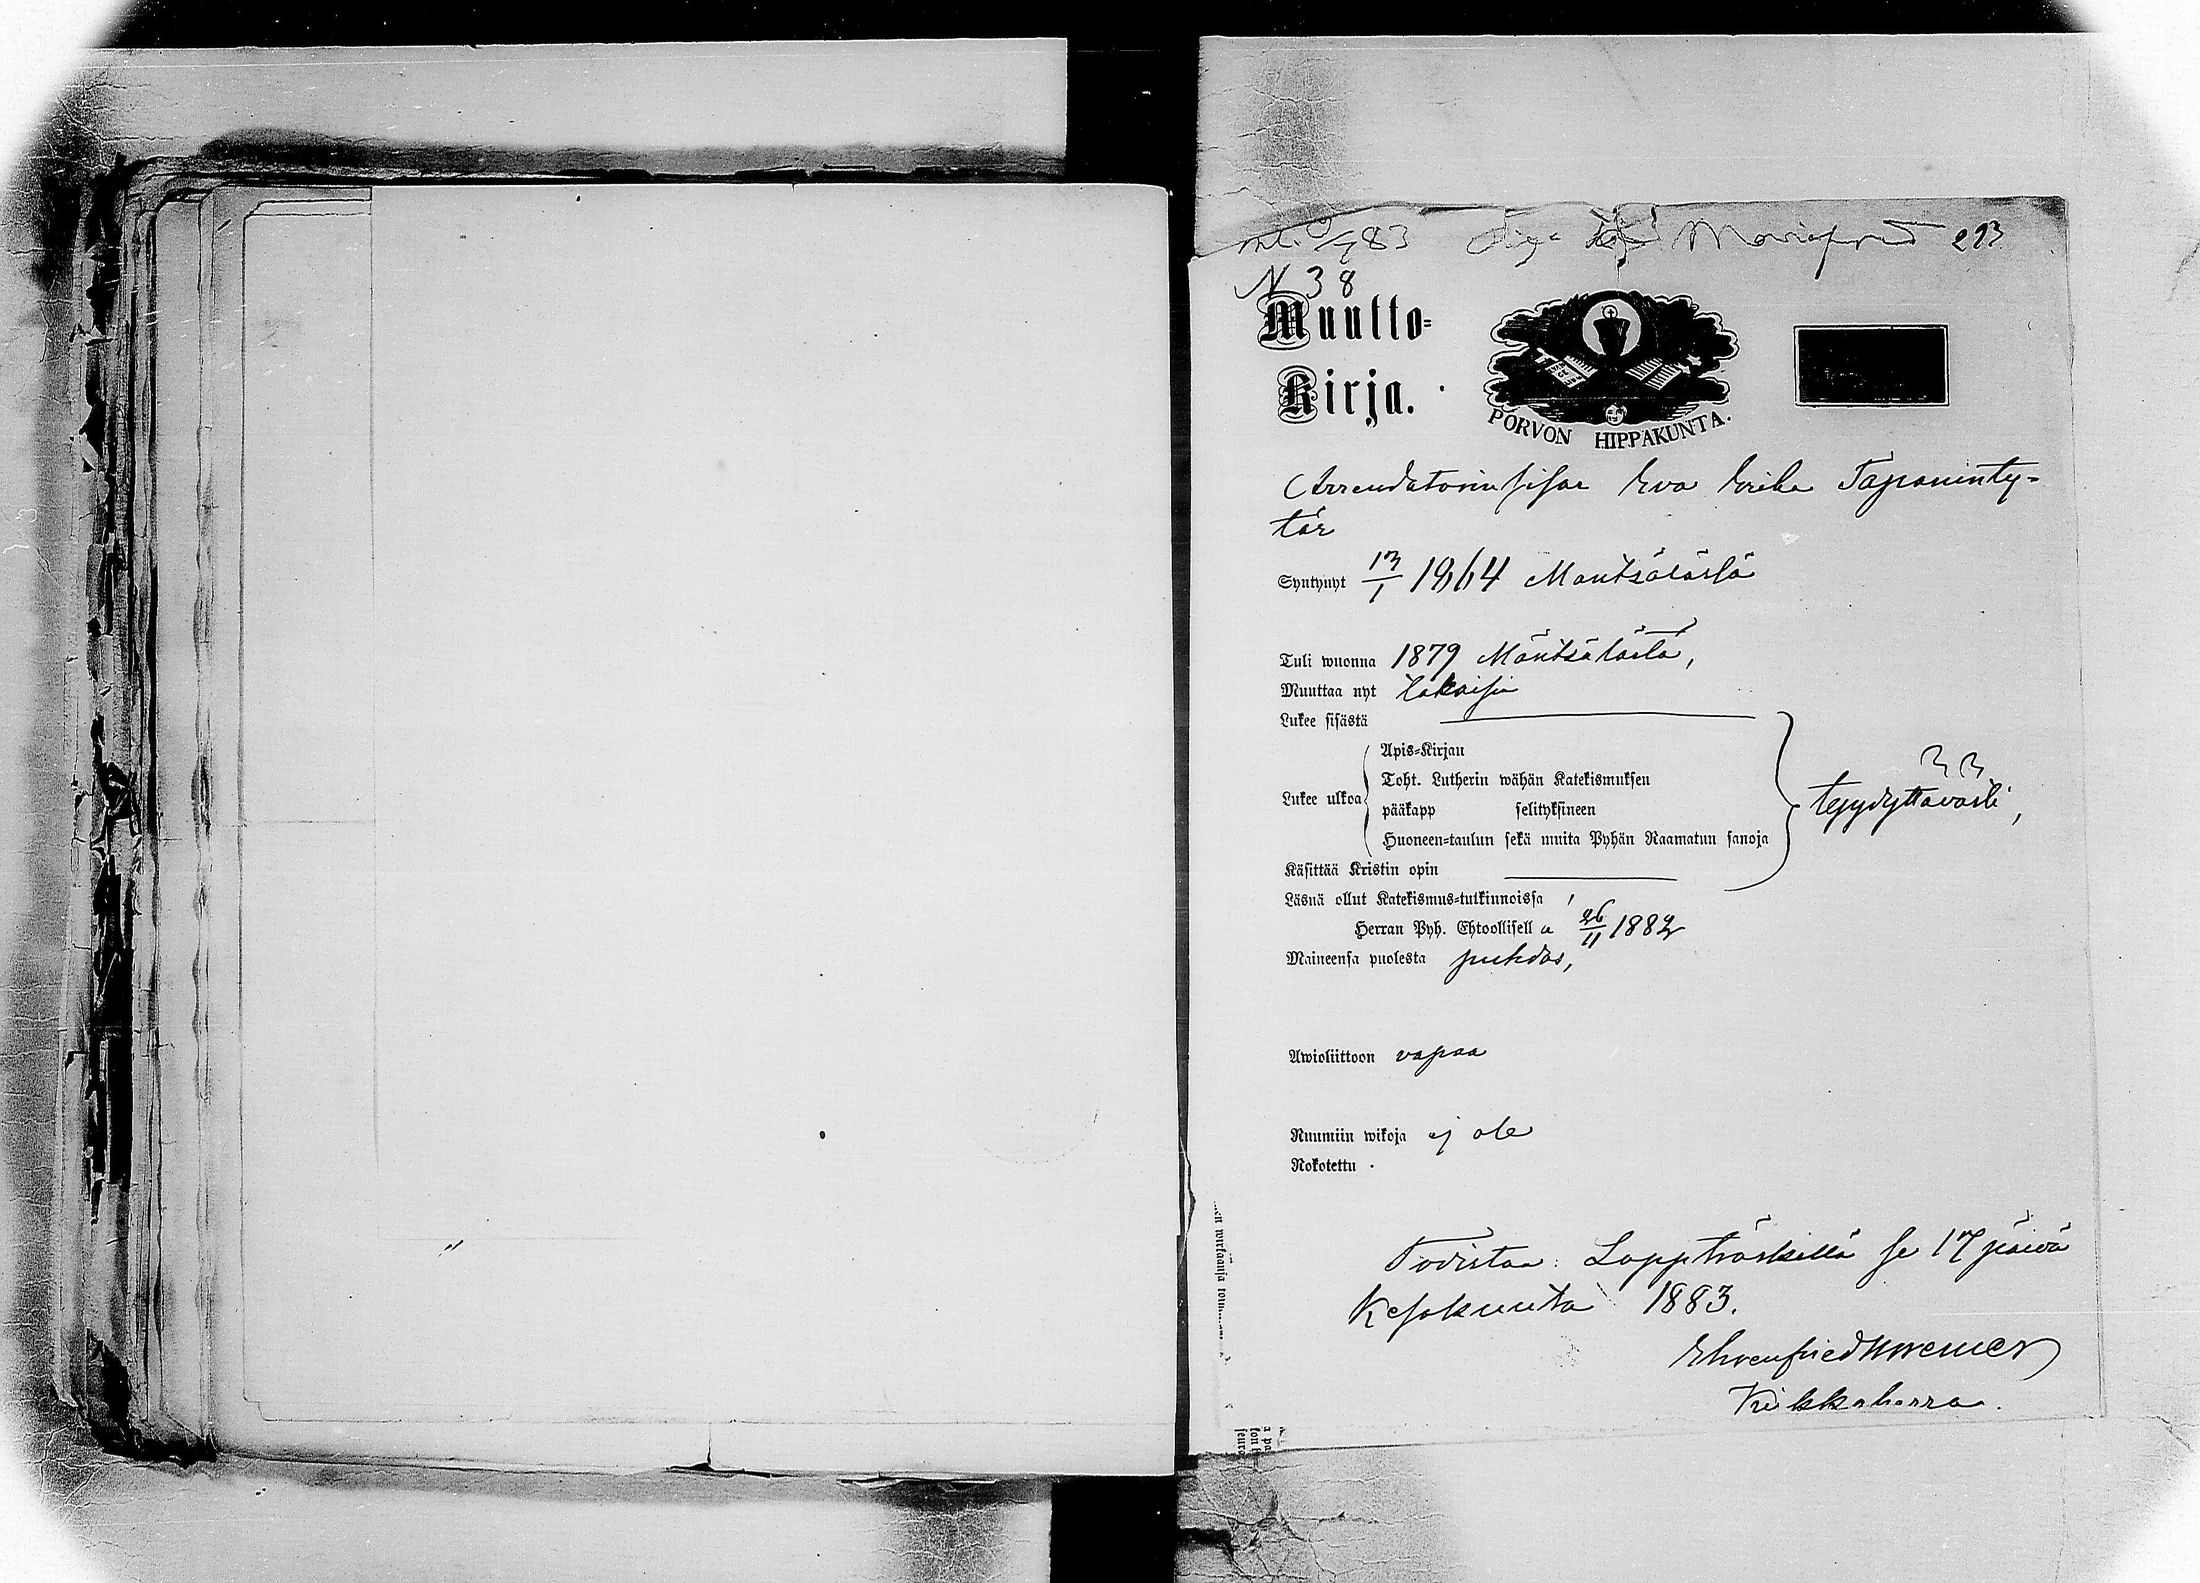 83 213
N 38
Muutto=
Kirja.
PORVON HIPPAKUNTA.
Arrendatorin sisar Eva Erika Tapaninty-
tär
Syntynyt 13/1 1864 Mäntsälässä
Tuli wuonna 1879 Mäntsälästä,
Muuttaa nyt takaisin
Lukee sisästä
Lukee ulkoa
Apis=Kirjan
Toht. Lutherin wähän Katekismuksen
pääkapp selityksineen
Huoneen=taulun sekä muita Pyhän Raamatun sanoja
tyydyttävästi,
Käsittää Kristin opin
Läsnä ollut Katekismus=tutkinnoissa
Herran Pyh. Ehtoollisella 26/11 1882
Maineensa puolesta puhdas,
Awioliittoon vapaa
Ruumiin wikoja ej ole
Rokotettu
Todistaa: Lappträskillä se 17 päivä
Kesäkuuta 1883.
Kirkkoherra.